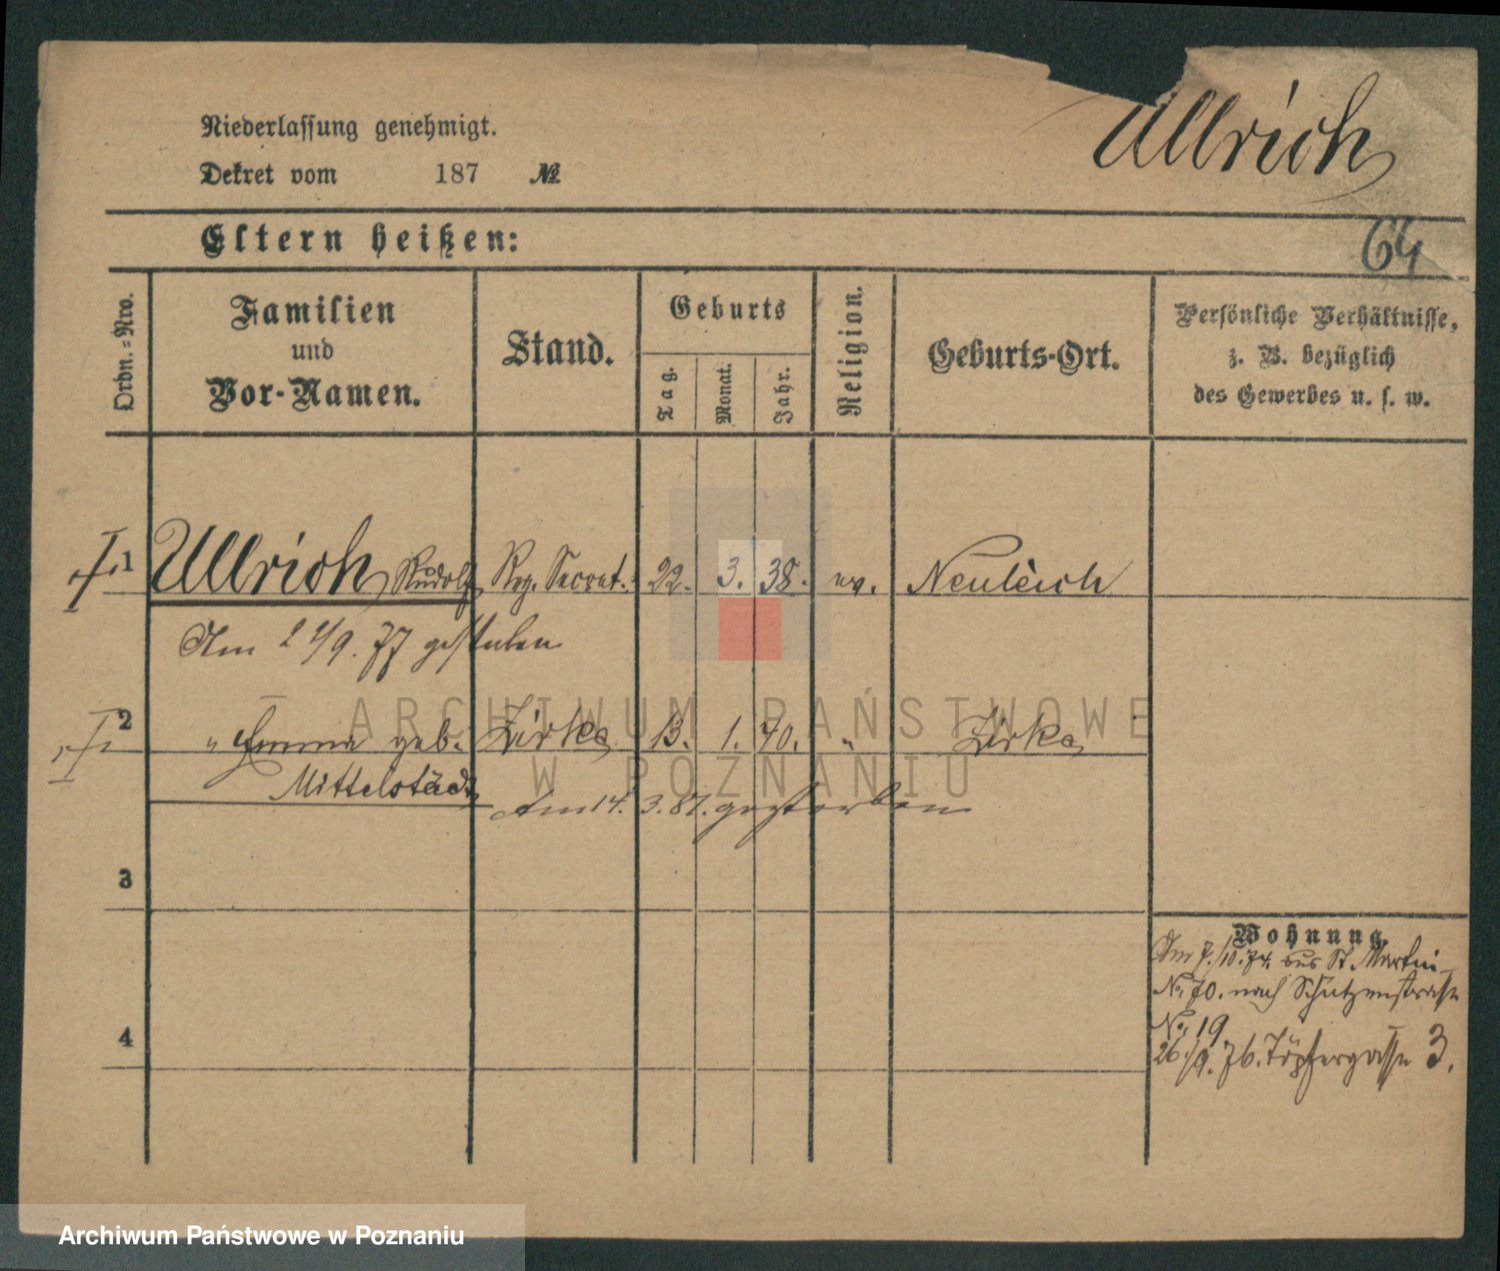 Niederlassung genehmigt.
Dekret vom 187 №
Ullrich
64
Eltern heißen:
Ordn.=Nro.
Familien
und
Vor-Namen.
Stand.
Geburts
Tag.
Monat.
Jahr.
Religion.
Geburts-Ort.
Persönliche Verhältnisse,
z. B. bezüglich
des Gewerbes u. s. w.
1 Ullrich Rudolf Reg. Secret. 22. 3. 38. ev.
Am /9. 77 gestorben
2 " Emma geb. Zirke 13. 1. " Zirke
Mittelstädt
Am 14. 3. 87. gestorben
3
4
Wohnung.
Am 7./10. 74. aus St. Martin
No. 70. nach Schützenstrasse
No. 19
26./9. 76. Töpfergasse 3.
ARCHIWUM PAŃSTWOWE
W POZNANIU
Archiwum Państwowe w Poznaniu